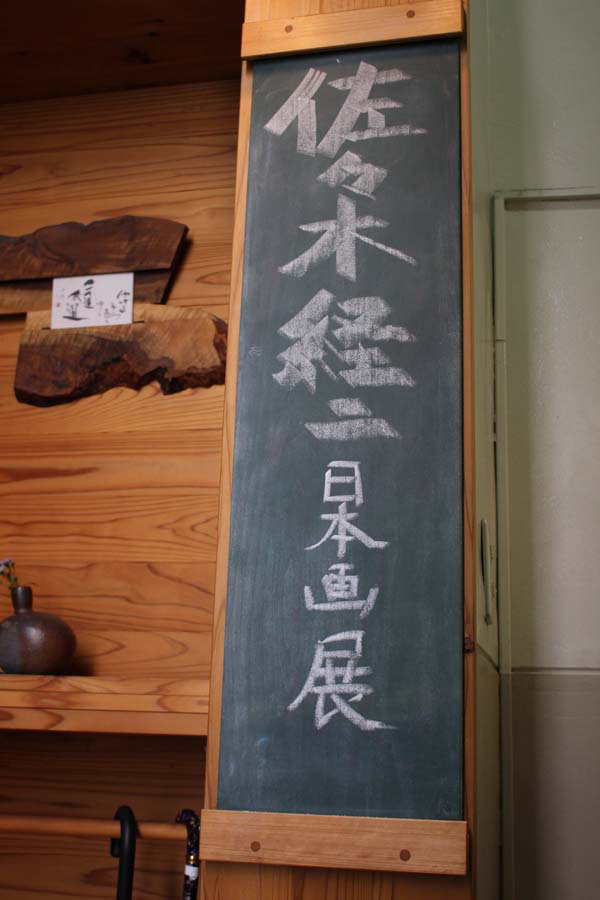 佐々木経二
日本画展